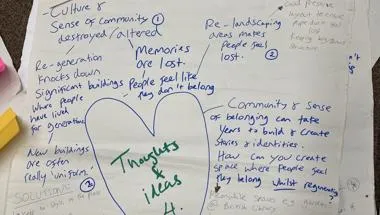 Culture &
Sense of Community ①
destroyed/altered
Memories
are lost.
Re-landscaping
areas makes
People feel
lost. ②
layout to ensure
Re-generation
Knocks down
Significant buildings
where people
have lived
for generations
People feel like
they don't belong
New buildings
are often
really 'uniform.'
②
SOLUTIONS
Community & sense
of belonging can take
Years to build & create
Stories & identities.
How can you create
space where people feel
they belong whilst regenerating?
Thoughts
&
ideas
4.
spaces e.g. garden
@ British Library